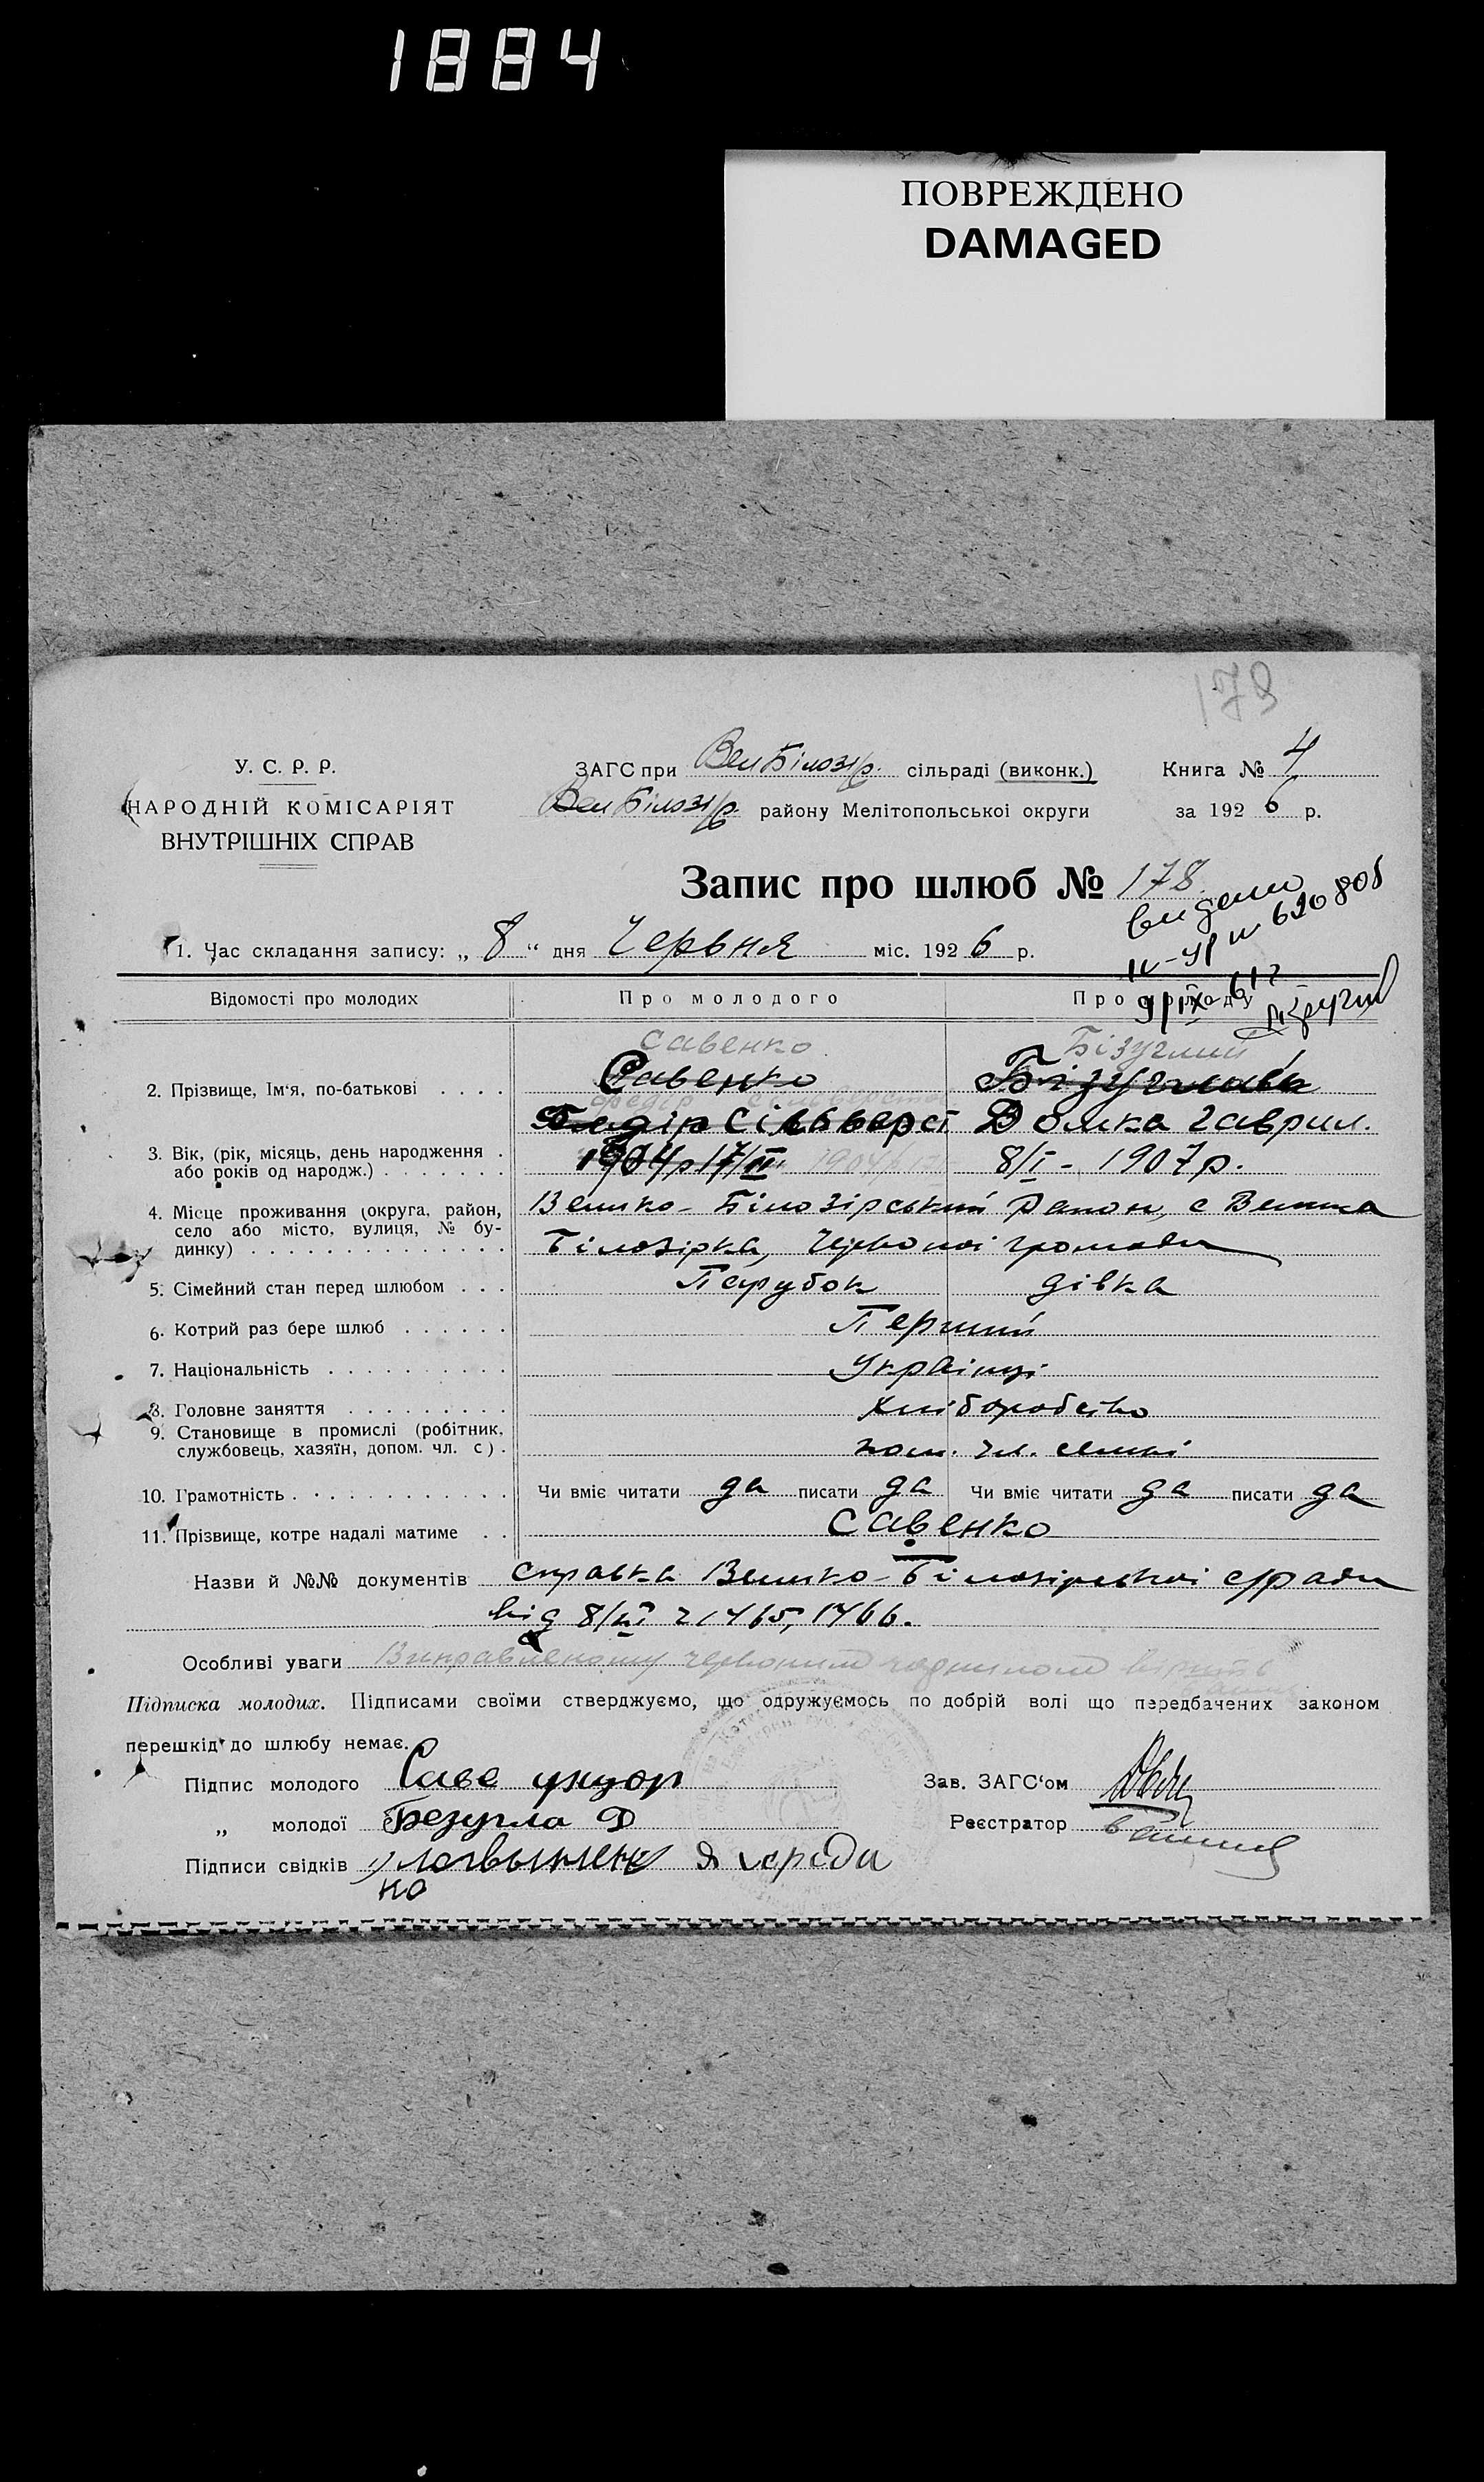 1884
ПОВРЕЖДЕНО
DAMAGED
178
У. С. Р. Р.
НАРОДНІЙ КОМІСАРІЯТ
ВНУТРІШНІХ СПРАВ
ЗАГС при Вел Білозір. сільраді (виконк.)
Книга № 4
Вел Білозір. району Мелітопольської округи
за 1926 р.
Запис про шлюб № 178.
видано
1. Час складання запису: „ 8 “ дня Червня міс. 1926 р.
Відомості про молодих
Про молодого
Про молоду
Савенко
Бізуглий
2. Прізвище, Ім‘я, по-батькові
Савенко
Федір Сільверст
Домка Гаврил.
3. Вік, (рік, місяць, день народження або років од народж.)
1904р 17/II
8/I - 1907р.
4. Місце проживання (округа, район, село або місто, вулиця, № будинку)
Велико-Білозірський район, с Велика
Білозірка, Червоної громади
5. Сімейний стан перед шлюбом
Парубок
дівка
6. Котрий раз бере шлюб
Перший
7. Національність
Українці
8. Головне заняття
хліборобство
9. Становище в промислі (робітник, службовець, хазяїн, допом. чл. с).
чл. семьї
10. Грамотність
Чи вміє читати да писати да
Чи вміє читати да писати да
11. Прізвище, котре надалі матиме
Савенко
Назви й №№ документів справка Велико-Білозірської с/ради
від 8/VI 1465, 1466.
Особливі уваги Виправленому червоним чорнилом вірить
Підписка молодих. Підписами своїми стверджуємо, що одружуємось по добрій волі що передбачених законом
перешкід до шлюбу немає.
Підпис молодого Саве
„ молодої Безугла Д
Підписи свідків 1)
Зав. ЗАГС‘ом
Реєстратор